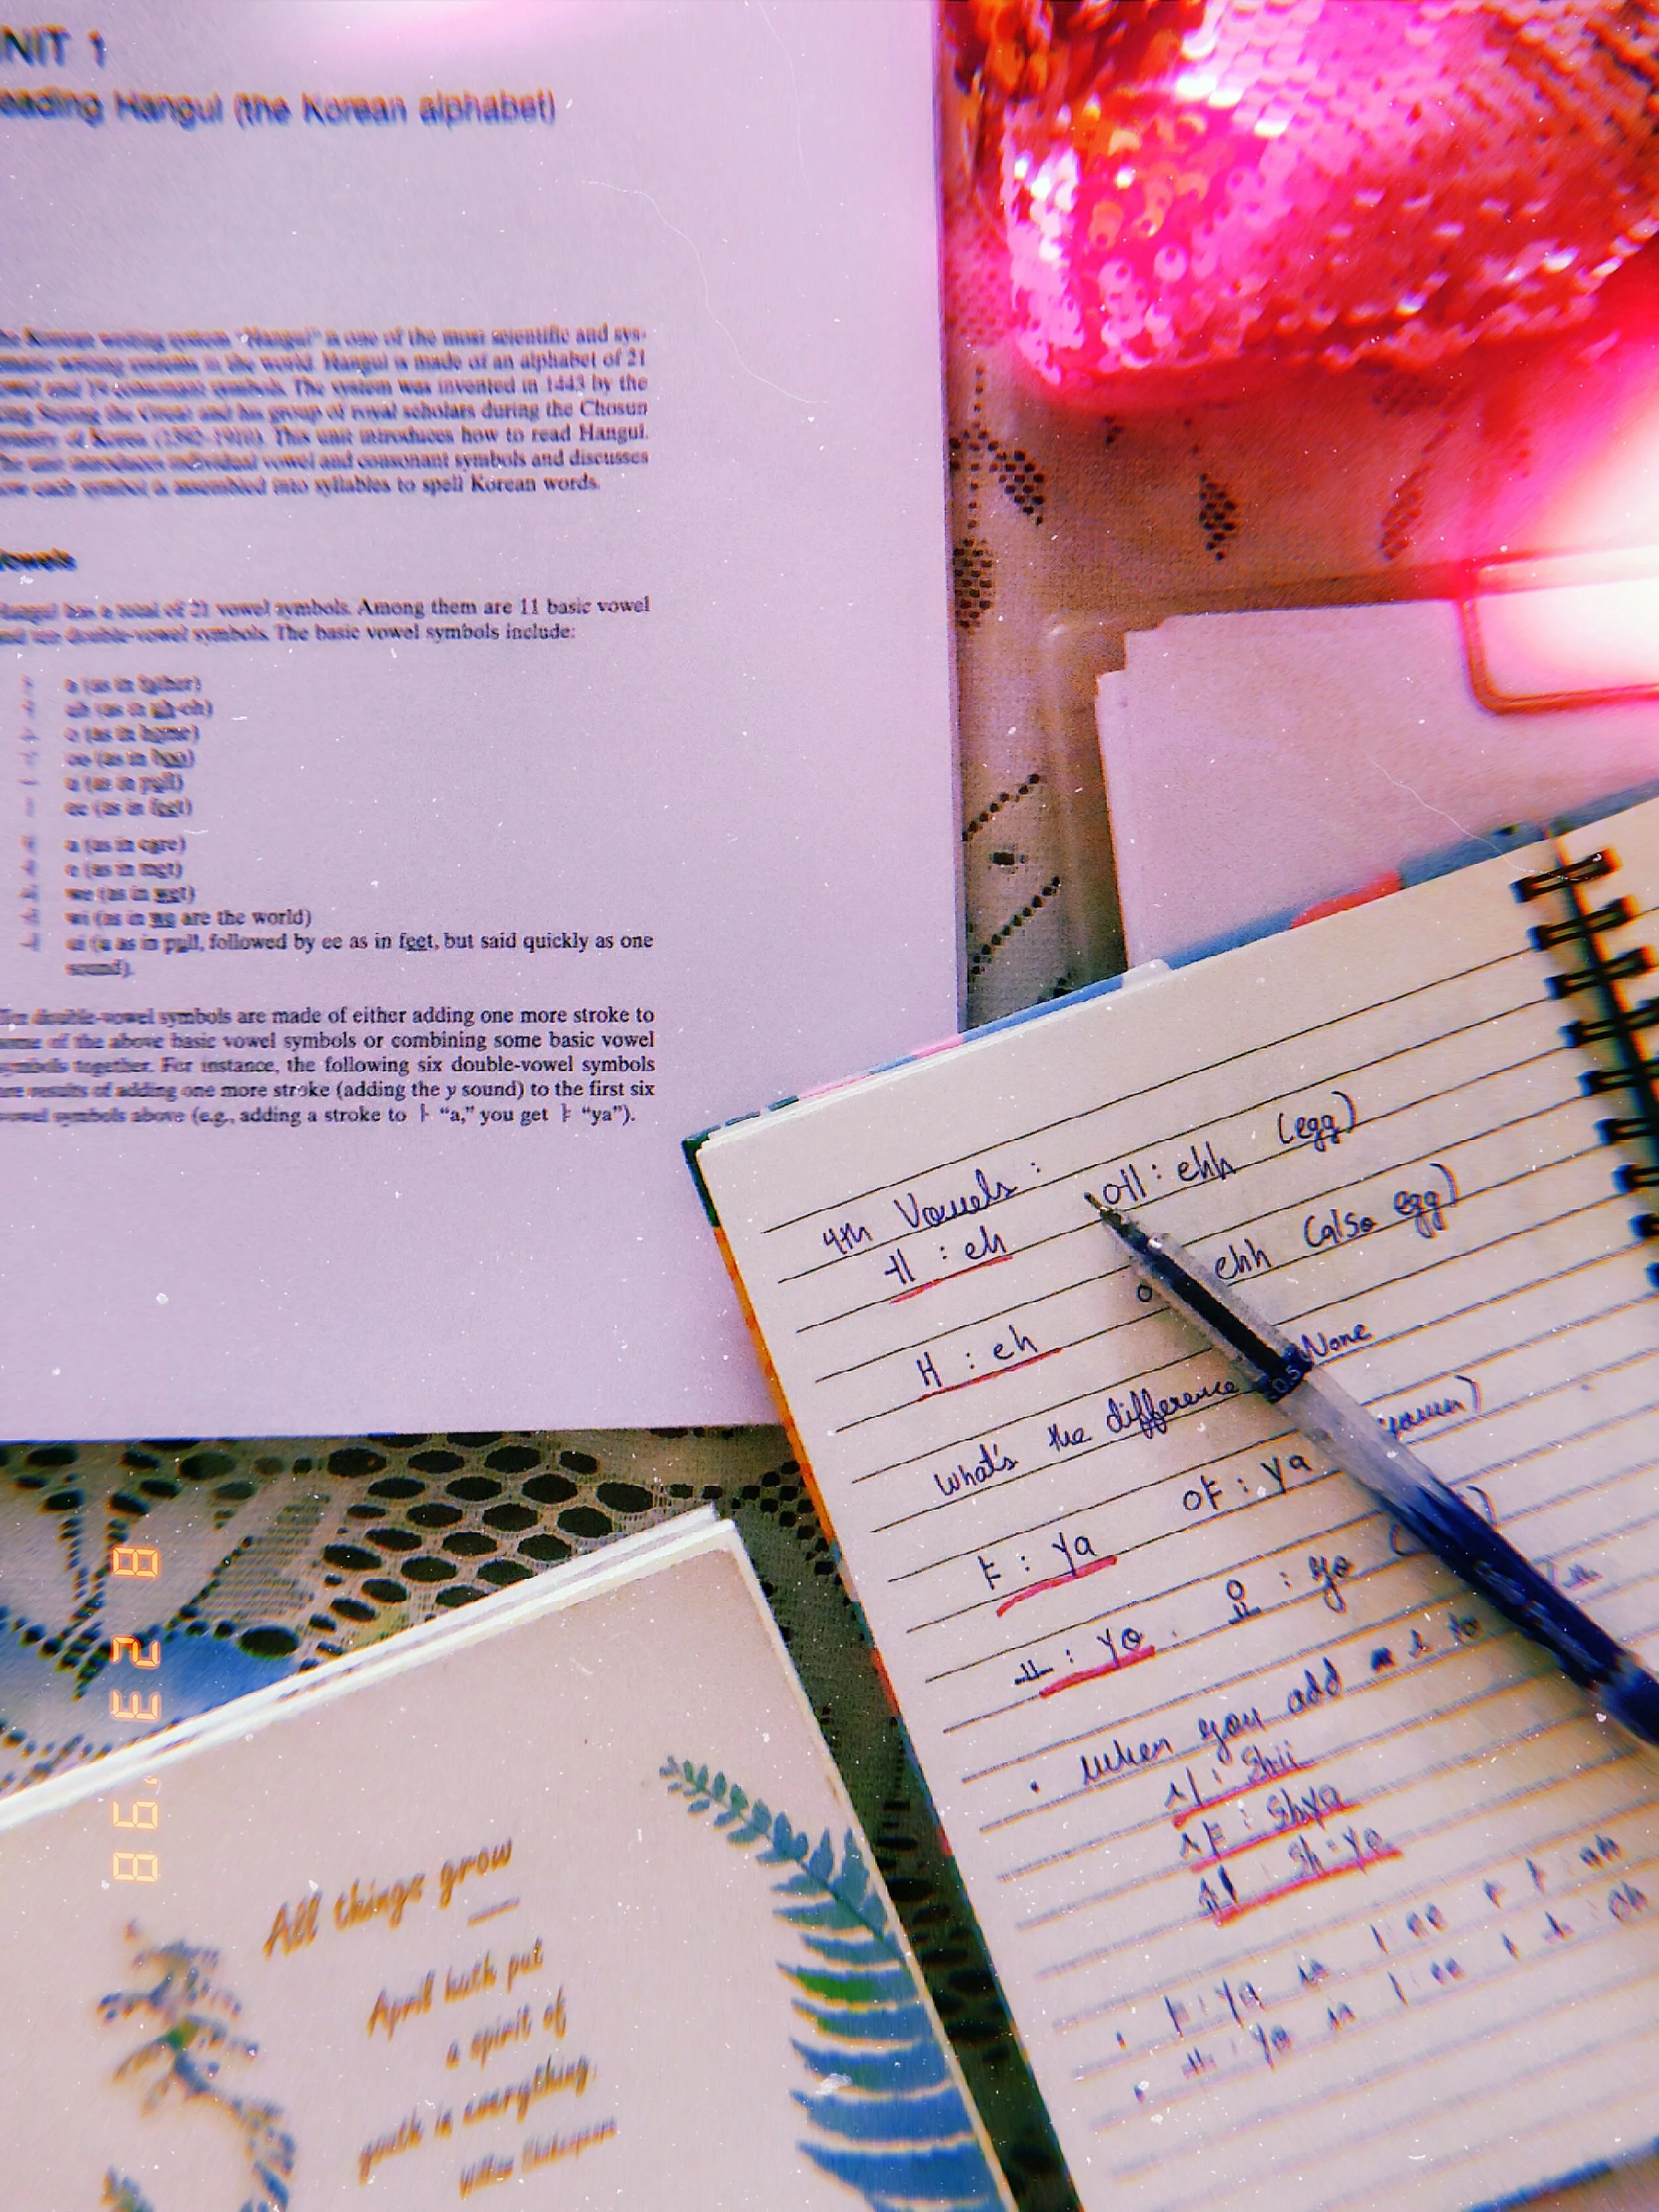 NIT 1
eading Hangul (the Korean alphabet)
he Korean writing system "Hangul" is one of the most scientific and sys-
writing systems in the world. Hangul is made of an alphabet of 21
and 19 consonant symbols. The system was invented in 1443 by the
the Great and his group of royal scholars during the Chosun
of Korea (1392–1910). This unit introduces how to read Hangul.
he unit introduces individual vowel and consonant symbols and discusses
ow each symbol is assembled into syllables to spell Korean words.
owels
Hangul has a total of 21 vowel symbols. Among them are 11 basic vowel
and ten double-vowel symbols. The basic vowel symbols include:
ㅏ a (as in father)
ㅓ uh (as in uh-oh)
ㅗ o (as in home)
ㅜ oo (as in boo)
ㅡ u (as in pull)
ㅣ ee (as in feet)
ㅐ a (as in care)
ㅔ e (as in met)
we (as in wet)
wi (as in we are the world)
ㅢ ui (u as in pull, followed by ee as in feet, but said quickly as one
sound).
Ten double-vowel symbols are made of either adding one more stroke to
some of the above basic vowel symbols or combining some basic vowel
symbols together. For instance, the following six double-vowel symbols
are results of adding one more stroke (adding the y sound) to the first six
vowel symbols above (e.g., adding a stroke to ㅏ "a," you get ㅑ "ya").
4th Vowels :
ㅔ : eh 에 : ehh (egg)
ㅐ : eh ehh (also egg)
What's the difference None
ㅑ : ya 야 : ya
ㅛ : yo 요 : yo
• when you add ㅅ to
시 : Shii
샤 : Shya
Sh : yo
• ㅑ : ya is ㅣ ee + ㅏ ah
• ㅛ : yo is ㅣ ee + ㅗ oh
All things grow
April hath put
a spirit of
youth is everything.
William Shakespeare
8 23 '98